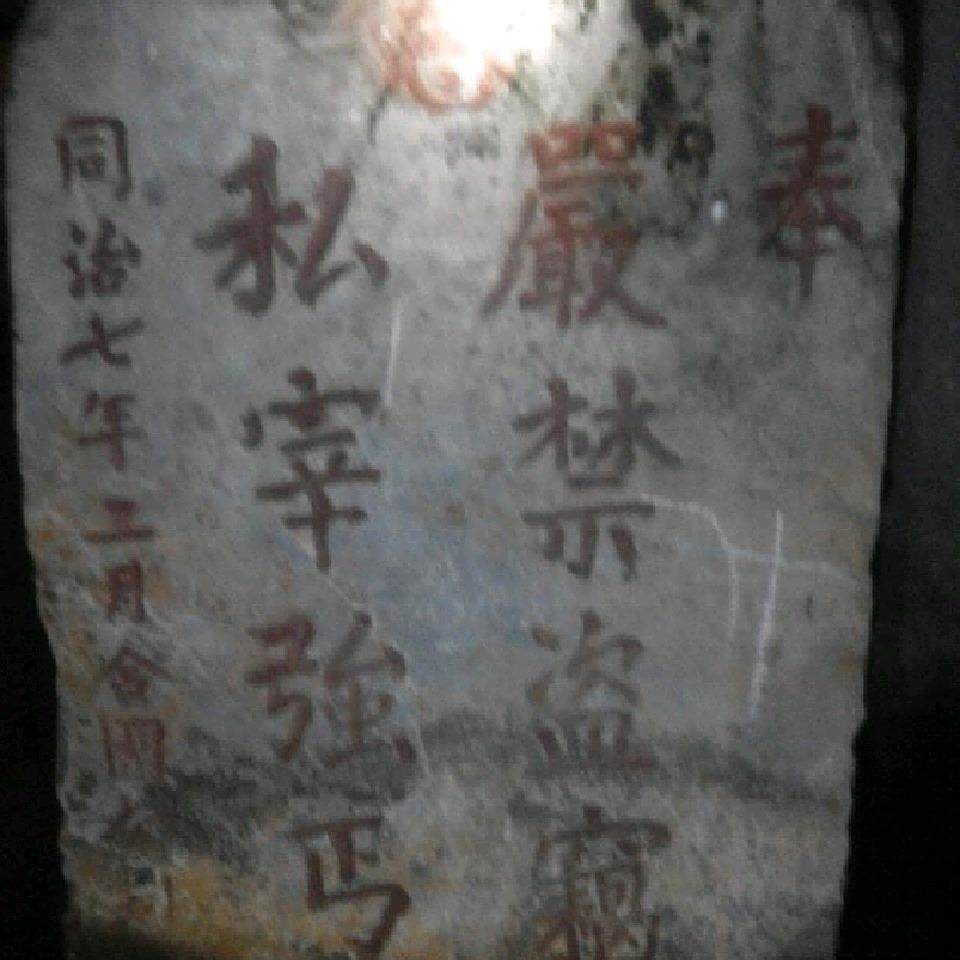 奉
嚴禁盜竊
私宰強丐
同治七年二月合閤公